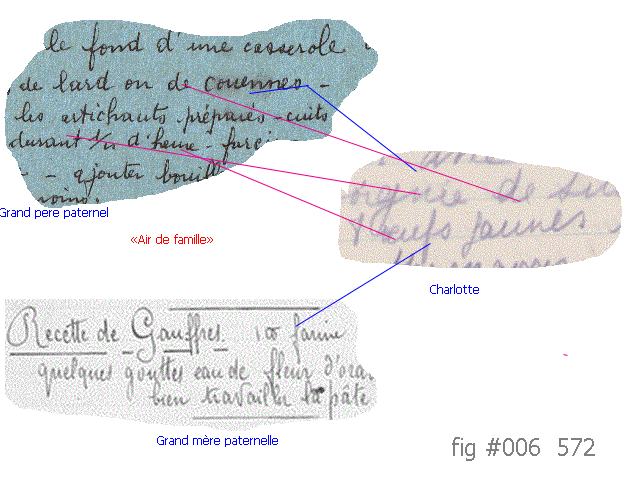 le fond d'une casserole
de lard ou de couennes -
les artichauts préparés - cuits
durant 1/2 d'heure - farci
- - ajouter bouill
moins.
Grand pere paternel
«Air de famille»
de su
oeufs jaunes
Charlotte
Recette de Gauffres. 100 farine
quelques gouttes eau de fleur d'oran
bien travailler la pâte
Grand mère paternelle
fig #006 572